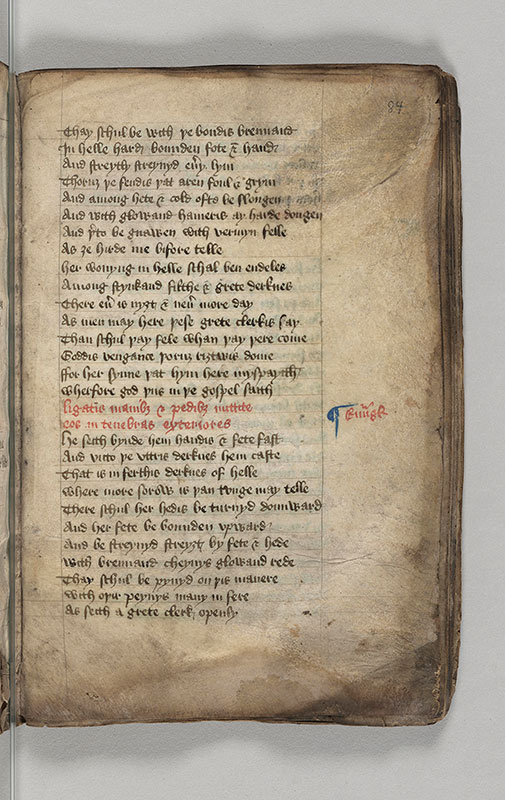 84
Thay schul be with þe bondis brennand
In helle hard bounden fote & hand
And streyth streynyd eu'y lym
Thoruȝ þe fendis þat aren foul & grym
And among hete & cold ofte be slongen
And with glowand hameris ay harde dongen
And þ'to be gnawen with vermyn felle
As ȝe hirde me bifore telle
her wonyng in helle schal ben endeles
Among stynkand filthe & grete derknes
There eu' is nyȝt & neu' more day
As men may here þese grete clerkis say
Than schul þay fele whan þay þere come
Goddis vengance þoruȝ riȝtwis dome
ffor her synne þat hym here myspayth
wherfore god þus in þe gospel saith
ligatis manibȝ & pedibȝ mittite
eos in tenebras exteriores
¶ Eu'ngł
he seith bynde hem handis & fete fast
And vnto þe vttris derknes hem caste
That is in ferthis derknes of helle
where more sorow is þan tonge may telle
There schul her hedis be turnyd dounward
And her fete be bounden vpward
And be streynyd streyȝt by fete & hede
with brennand cheynys glowand rede
Thay schul be pynyd on þis manere
with oþ'r peynys many in fere
As seith a grete clerk openly